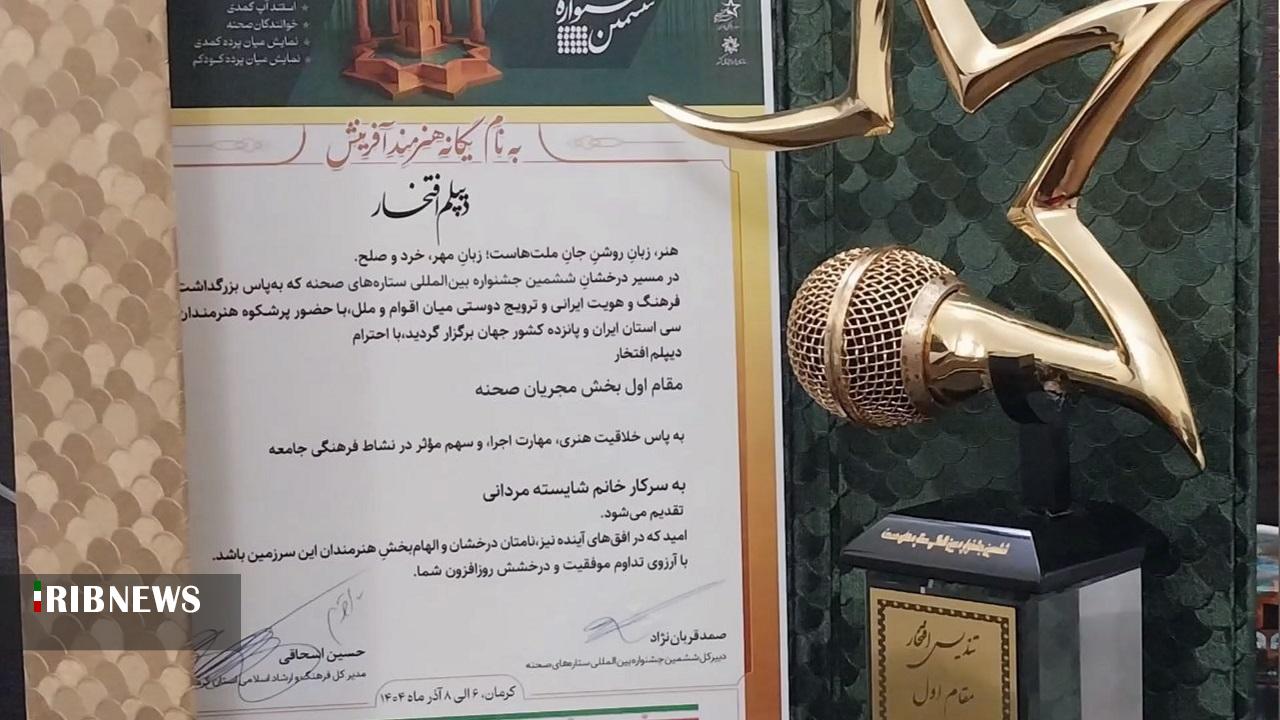 استندآپ کمدی
خوانندگان صحنه
نمایش میان پرده کمدی
نمایش میان پرده کودکم
ششمین
به نام یگانه هنرمند آفرینش
دیپلم افتخار
هنر، زبانِ روشنِ جانِ ملت‌هاست؛ زبانِ مهر، خرد و صلح.
در مسیر درخشانِ ششمین جشنواره بین‌المللی ستاره‌های صحنه که به‌پاس بزرگداشت
فرهنگ و هویت ایرانی و ترویج دوستی میان اقوام و ملل،با حضور پرشکوه هنرمندان
سی استان ایران و پانزده کشور جهان برگزار گردید،با احترام
دیپلم افتخار
مقام اول بخش مجریان صحنه
به پاس خلاقیت هنری، مهارت اجرا، و سهم مؤثر در نشاط فرهنگی جامعه
به سرکار خانم شایسته مردانی
تقدیم می‌شود.
امید که در افق‌های آینده نیز،نامتان درخشان و الهام‌بخشِ هنرمندان این سرزمین باشد.
با آرزوی تداوم موفقیت و درخشش روزافزون شما.
صمد قربان‌نژاد
دبیر کل ششمین جشنواره بین‌المللی ستاره‌های صحنه
حسین اسحاقی
مدیر کل فرهنگ و ارشاد اسلامی استان
کرمان، ۶ الی ۸ آذر ماه ۱۴۰۴
تندیس افتخار
مقام اول
IRIBNEWS